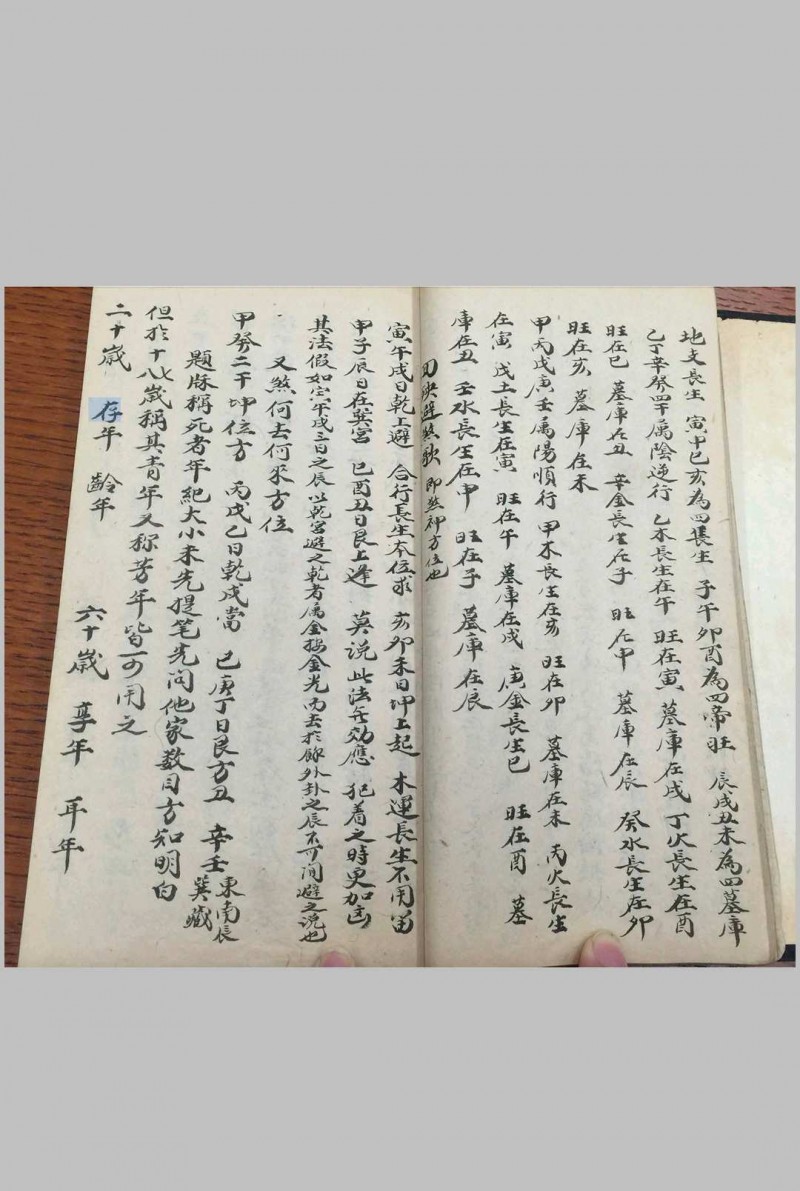 地支長生　寅申巳亥為四長生　子午卯酉為四帝旺　辰戌丑未為四墓庫
乙丁辛癸四干属陰逆行　乙木長生在午　旺在寅　墓庫在戌　丁火長生在酉
旺在巳　墓庫在丑　辛金長生在子　旺在申　墓庫在辰　癸水長生在卯
旺在亥　墓庫在未
甲丙戊庚壬為陽順行　甲木長生在亥　旺在卯　墓庫在未　丙火長生
在寅　戊土長生在寅　旺在午　墓庫在戌　庚金長生巳　旺在酉　墓
庫在丑　壬水長生在申　旺在子　墓庫在辰
殃避煞歌　即煞神方位也
寅午戌日乾上避　合行長生本位求　亥卯未日坤上起　木運長生不用留
甲子辰日在巽宮　巳酉丑日艮上逢　莫说此法無効應　犯着之時更加凶
其法假如寅午戌三日之辰以乾宮避之乾者属金按金光而去於餘外卦之辰不可同避之说也
又煞何去何来方位
甲癸二干坤位方　丙戊乙日乾戌當　己庚丁日艮方丑　辛壬東南辰巽藏
題牌稱死者年紀大小未先提笔先问他家数目方知明白
但於十八歲稱其青年又称芳年皆可用之
二十歲　存年　齡年　六十歲　享年　年年